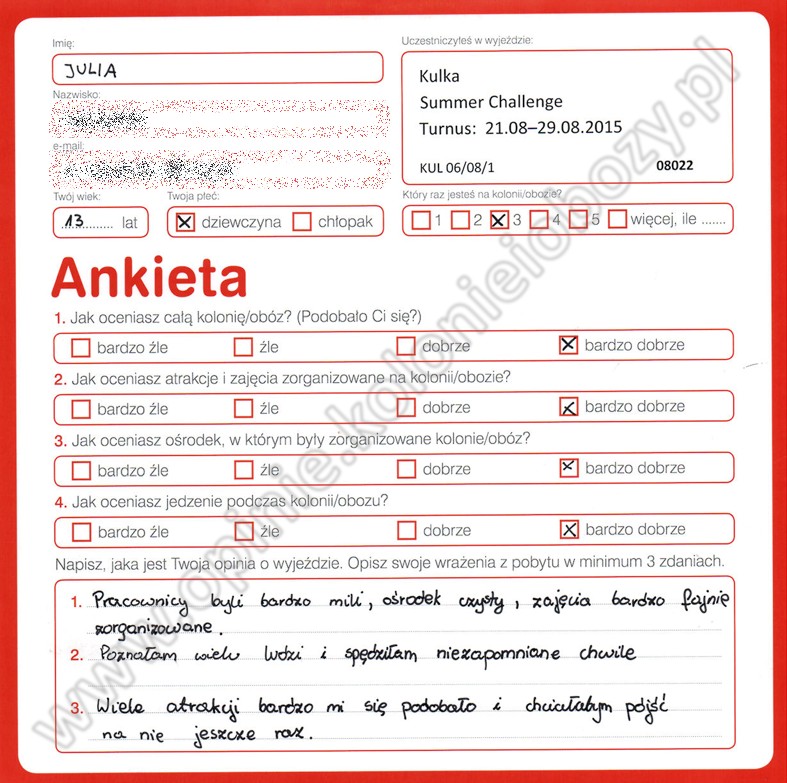 Imię:
JULIA
Nazwisko:
e-mail:
Twój wiek:
13 lat
Twoja płeć:
dziewczyna chłopak
Uczestniczyłeś w wyjeździe:
Kulka
Summer Challenge
Turnus: 21.08–29.08.2015
KUL 06/08/1 08022
Który raz jesteś na kolonii/obozie?
1 2 3 4 5 więcej, ile .......
Ankieta
1. Jak oceniasz całą kolonię/obóz? (Podobało Ci się?)
bardzo źle źle dobrze bardzo dobrze
2. Jak oceniasz atrakcje i zajęcia zorganizowane na kolonii/obozie?
bardzo źle źle dobrze bardzo dobrze
3. Jak oceniasz ośrodek, w którym były zorganizowane kolonie/obóz?
bardzo źle źle dobrze bardzo dobrze
4. Jak oceniasz jedzenie podczas kolonii/obozu?
bardzo źle źle dobrze bardzo dobrze
Napisz, jaka jest Twoja opinia o wyjeździe. Opisz swoje wrażenia z pobytu w minimum 3 zdaniach.
1. Pracownicy byli bardzo mili, ośrodek czysty, zajęcia bardzo fajnie
zorganizowane.
2. Poznałam wielu ludzi i spędziłam niezapomniane chwile
3. Wiele atrakcji bardzo mi się podobało i chciałabym pójść
na nie jeszcze raz.
www.opinie.kolonieiobozy.pl